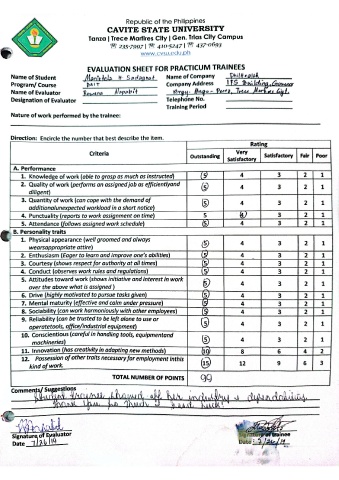 Republic of the Philippines
CAVITE STATE UNIVERSITY
Tanza | Trece Martires City | Gen. Trias City Campus
☏ 235-7997 / ☏ 410-5247 / ☏ 437-0693
www.cvsu.edu.ph
EVALUATION SHEET FOR PRACTICUM TRAINEES
Name of Student
Program/ Course
Name of Evaluator
Designation of Evaluator
Name of Company
Company Address
Telephone No.
Training Period
Nature of work performed by the trainee:
Direction: Encircle the number that best describe the item.
Criteria Rating
Outstanding Very Satisfactory Satisfactory Fair Poor
A. Performance
1. Knowledge of work (able to grasp as much as instructed) 5 4 3 2 1
2. Quality of work (performs an assigned job as efficiently and
diligent) 5 4 3 2 1
3. Quantity of work (can cope with the demand of
additional unexpected workload in a short notice) 5 4 3 2 1
4. Punctuality (reports to work assignment on time) 5 4 3 2 1
5. Attendance (follows assigned work schedule) 5 4 3 2 1
B. Personality traits
1. Physical appearance (well groomed and always
wears appropriate attire) 5 4 3 2 1
2. Enthusiasm (Eager to learn and improve one's abilities) 5 4 3 2 1
3. Courtesy (shows respect for authority at all times) 5 4 3 2 1
4. Conduct (observes work rules and regulations) 5 4 3 2 1
5. Attitudes toward work (shows initiative and interest in work
over the above what is assigned) 5 4 3 2 1
6. Drive (highly motivated to pursue tasks given) 5 4 3 2 1
7. Mental maturity (effective and calm under pressure) 5 4 3 2 1
8. Sociability (can work harmoniously with other employees) 5 4 3 2 1
9. Reliability (can be trusted to be left alone to use or
operate tools, office/industrial equipment) 5 4 3 2 1
10. Conscientious (careful in handling tools, equipment and
machineries) 5 4 3 2 1
11. Innovation (has creativity in adopting new methods) 10 8 6 4 2
12. Possession of other traits necessary for employment in this
kind of work. 15 12 9 6 3
TOTAL NUMBER OF POINTS 99
Comments/ Suggestions
Student trainee showed off her industry & dependability.
Thank you so much & Good luck!
Signature of Evaluator
Date 7/26/19
Signature of trainee
Date: 7/26/19